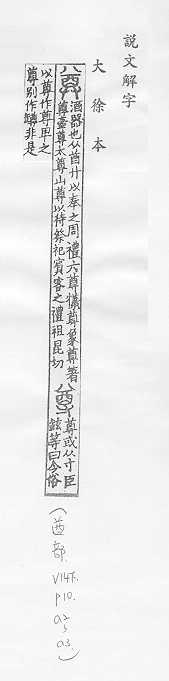 說文解字
大徐本
酒器也从酋廾以奉之周禮六尊犧尊象尊著
尊壺尊太尊山尊以待祭祀賓客之禮祖昆切
尊或从寸臣
鉉等曰今俗
以尊作尊卑之
尊別作罇非是
(酋部.
V14下.
P10.
a2
a3.)